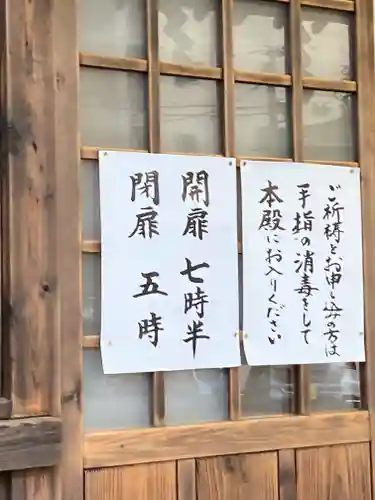 ご祈祷をお申し込みの方は
手指の消毒をして
本殿にお入りください
開扉 七時半
閉扉 五時